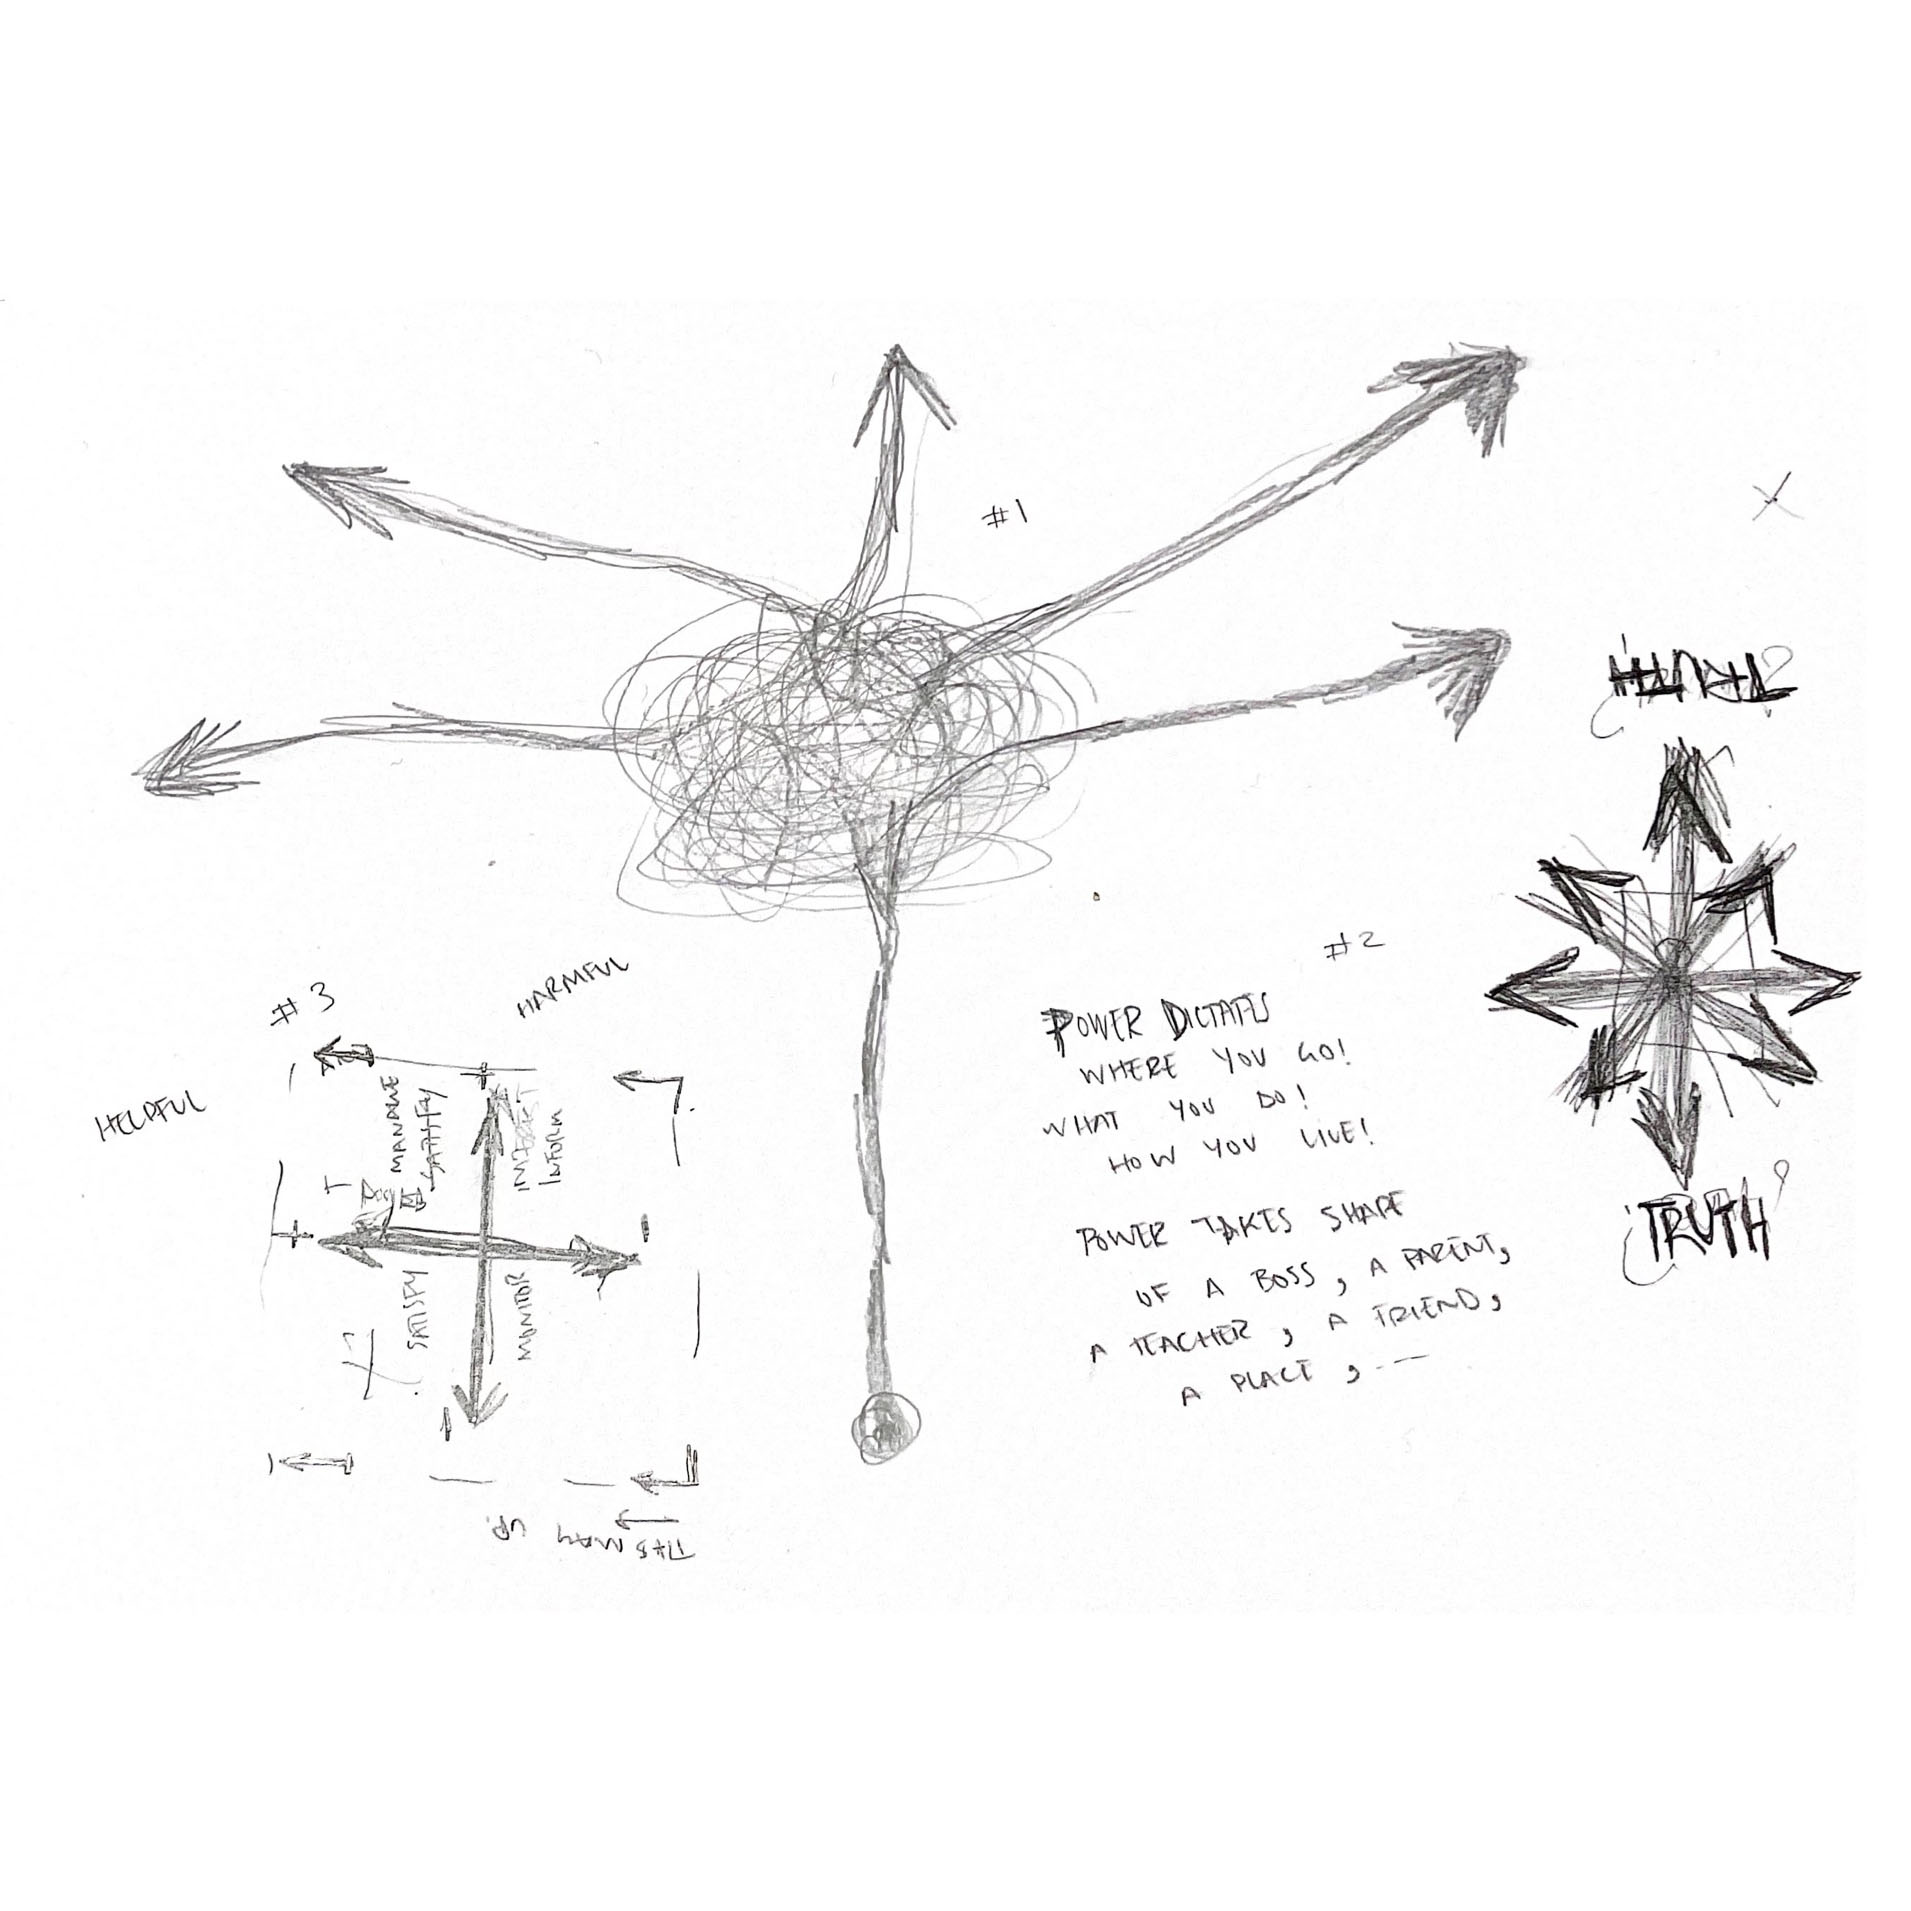 #1
TRUTH?
#2
POWER DICTATES
WHERE YOU GO!
WHAT YOU DO!
HOW YOU LIVE!
POWER TAKES SHAPE
OF A BOSS, A PARENT,
A TEACHER, A FRIEND,
A PLACE, ---
¿TRUTH?
#3
HARMFUL
HELPFUL
MANAGE
SATISFY
INTEREST
INFORM
SATISFY
MONITOR
THIS WAY UP.